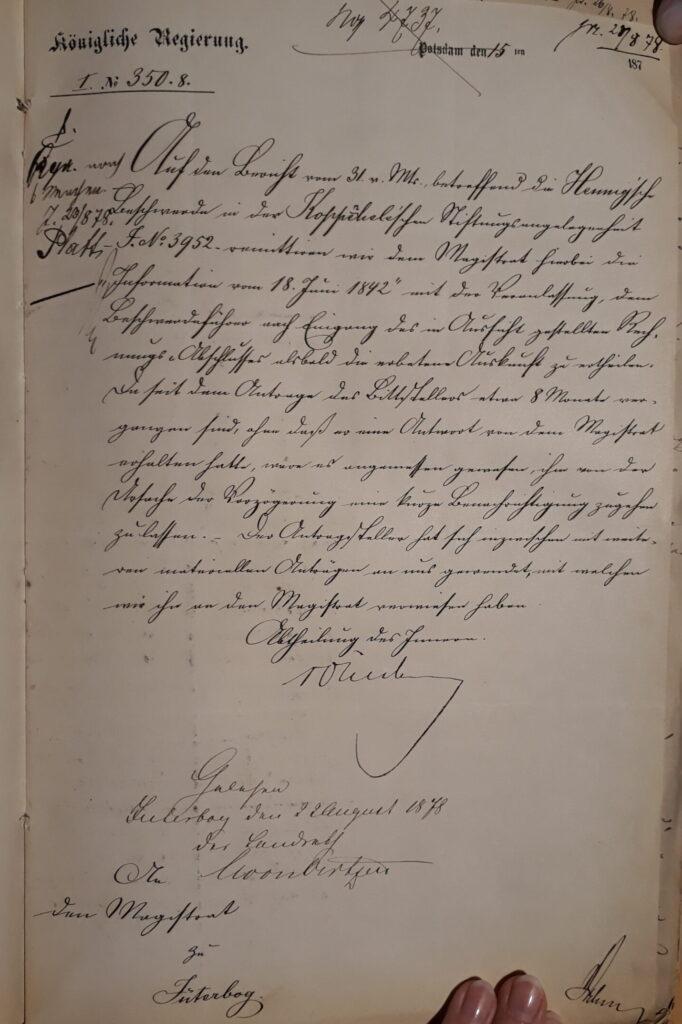 Königliche Regierung.
Potsdam den 15 ten
187
I. № 350. 8.
23/8 78.
Auf den Bericht vom 31. v. Mts., betreffend die Hennig'sche
Beschwerde in der Koppehelischen Stiftungsangelegenheit
- J. No. 3952 - remittiren wir dem Magistrat hierbei die
"Information vom 18. Juni 1842" mit der Veranlassung, dem
Beschwerdeführer nach Eingang des in Aussicht gestellten Rech-
nungs-Abschlusses alsbald die erbetene Auskunft zu ertheilen.
Da seit dem Antrage des Bittstellers etwa 8 Monate ver-
gangen sind, ohne daß er eine Antwort von dem Magistrat
erhalten hatte, wäre es angemessen gewesen, ihm von der
Ursache der Verzögerung eine kurze Benachrichtigung zugehen
zu lassen. - Der Antragsteller hat sich inzwischen mit weite-
ren materiellen Anträgen an uns gewendet, mit welchen
wir ihn an den Magistrat verwiesen haben.
Abtheilung des Innern.
Gelesen
Jüterbog den 22 August 1878
der Landrath
An
den Magistrat
zu
Jüterbog.